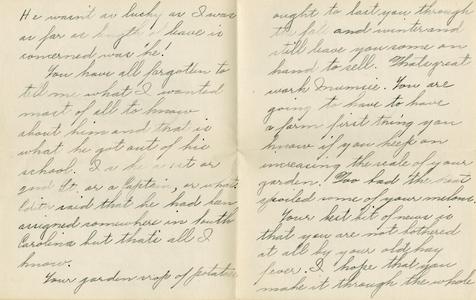 He wasn't as lucky as I was
as far as length of leave is
concerned was he!
You have all forgotten to
tell me what I wanted
most of all to know
about him and that is
what he got out of his
school. Is he a 1st or
2nd Lt. or a Captain, or what.
said that he had been
assigned somewhere in South
Carolina but thats all I
know.
Your garden crop of potatoes
ought to last you through
the fall and winter and
still leave you some on
hand to sell. Thats great
work Mumsie. You are
going to have to have
a farm first thing you
know if you keep on
increasing the size of your
garden. Too bad the
spoiled some of your melons.
Your best bit of news is
that you are not bothered
at all by your old hay
fever. I hope that you
make it through the whole